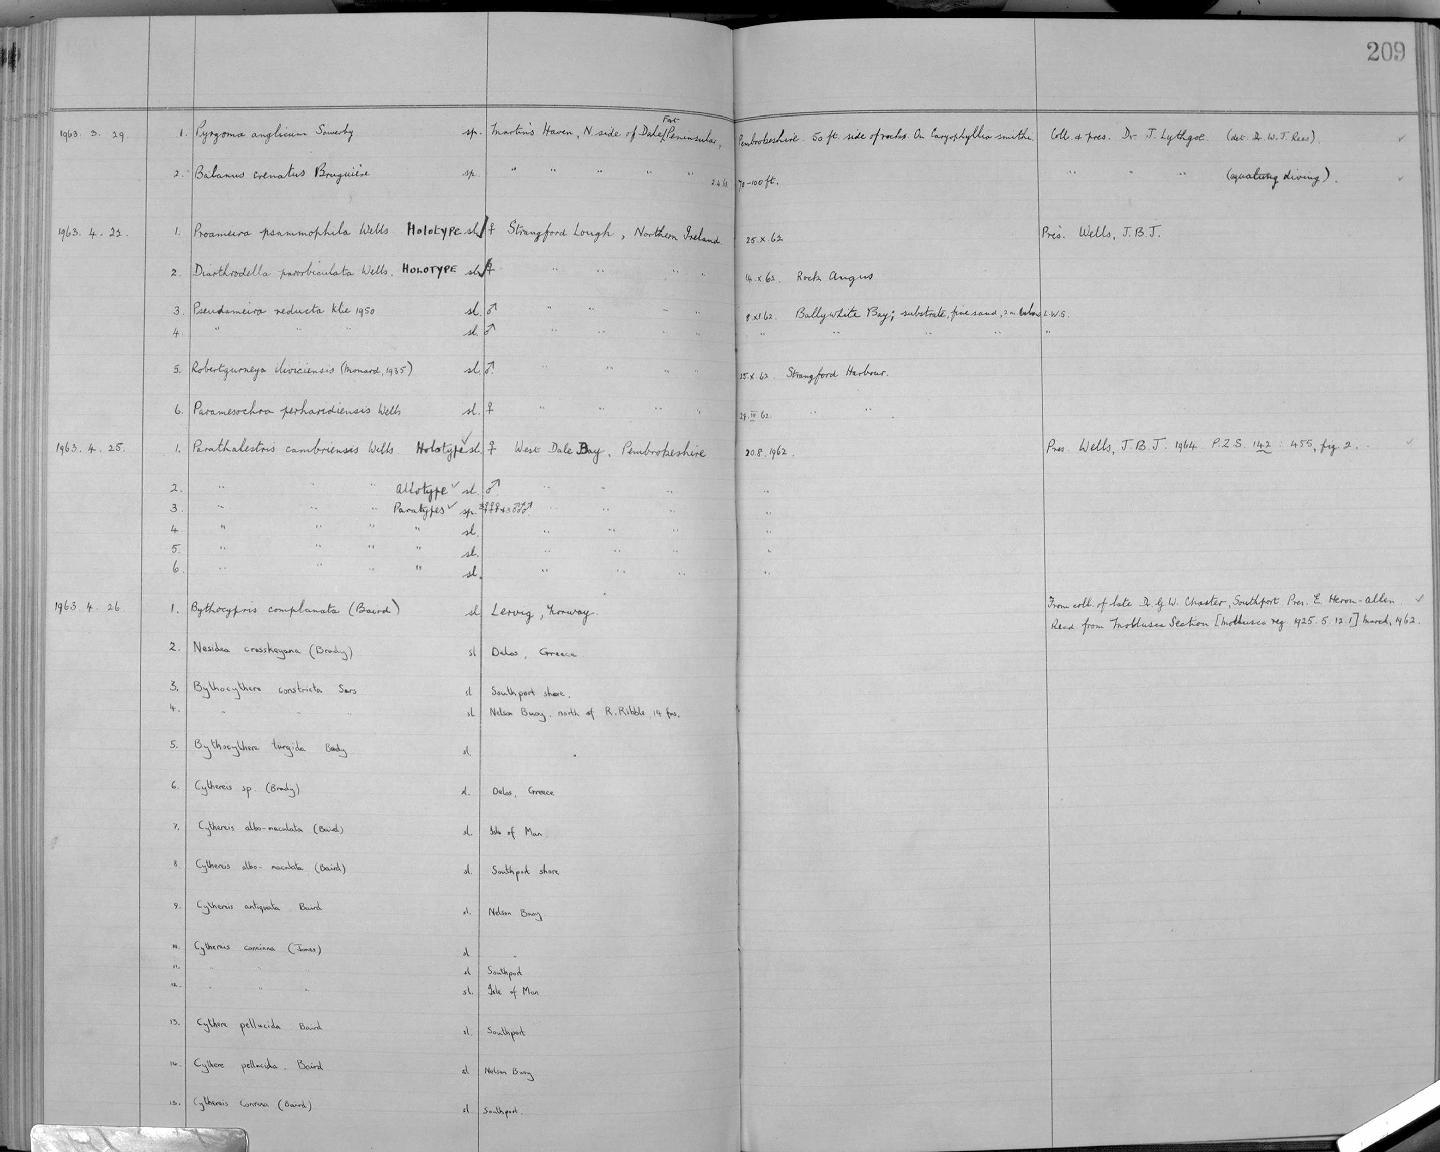 209
1963. 3. 29. 1. Pyrgoma anglicum Sowerby sp. Martin's Haven, N. side of Dale Fort Peninsular, Pembrokeshire. 50 ft. side of rocks. On Caryophyllia smithii. Coll. & pres. Dr. J. Lythgoe. (det. Dr. W. J. Rees).
2. Balanus crenatus Bruguière sp. " " " " " 70-100 ft. " " " (aqualung diving).
1963. 4. 22. 1. Proameira psammophila Wells HOLOTYPE sl. ♀ Strangford Lough, Northern Ireland 25.X.62 Pres. Wells, J.B.J.
2. Diarthrodella parorbiculata Wells. HOLOTYPE sl. ♀ " " " " 14.X.62. Rock Angus
3. Pseudameira reducta Klie 1950 sl. ♂ " " " " 8.XI.62. Ballywhite Bay; substrate, fine sand, 2m below L.W.S.
4. " " " sl. ♂ " " " " " " " " "
5. Robertgurneya (Monard, 1935) sl. ♂ " " " " 25.X.62. Strangford Harbour.
6. Paramesochra Wells sl. ♀ " " " " 62. " "
1963. 4. 25. 1. Parathalestris cambriensis Wells Holotype sl. ♀ West Dale Bay, Pembrokeshire 20.8.1962. Pres. Wells, J.B.J. 1964 P.Z.S. 142 : 455, fig 2.
2. " " " Allotype sl. ♂ " " " "
3. " " " Paratypes sp. 3♀♀♀+3♂♂♂ " " " "
4. " " " " sl. " " " "
5. " " " " sl. " " " "
6. " " " " sl. " " " "
1963. 4. 26. 1. Bythocypris complanata (Baird) sl Lervig, Norway. From coll. of late Dr G. W. Chaster, Southport Pres. E. Heron-Allen.
Recd from Mollusca Section [Mollusca reg. 1925. 5. 12. 1] March, 1962.
2. Nesidea crosskeyana (Brady) sl Delos, Greece
3. Bythocythere constricta Sars sl Southport shore.
4. " " " sl Nelson Buoy. north of R. Ribble 14 fms.
5. Bythocythere turgida Brady sl. "
6. Cythereis sp. (Brady) sl. Delos, Greece
7. Cythereis albo-maculata (Baird) sl. Isle of Man
8. Cythereis albo-maculata (Baird) sl. Southport shore
9. Cythereis antiquata Baird sl. Nelson Buoy
10. Cythereis concinna (Jones) sl "
11. " " " sl Southport
12. " " " sl. Isle of Man
13. Cythere pellucida Baird sl. Southport
14. Cythere pellucida. Baird sl Nelson Buoy
15. Cythereis (Baird) sl Southport.